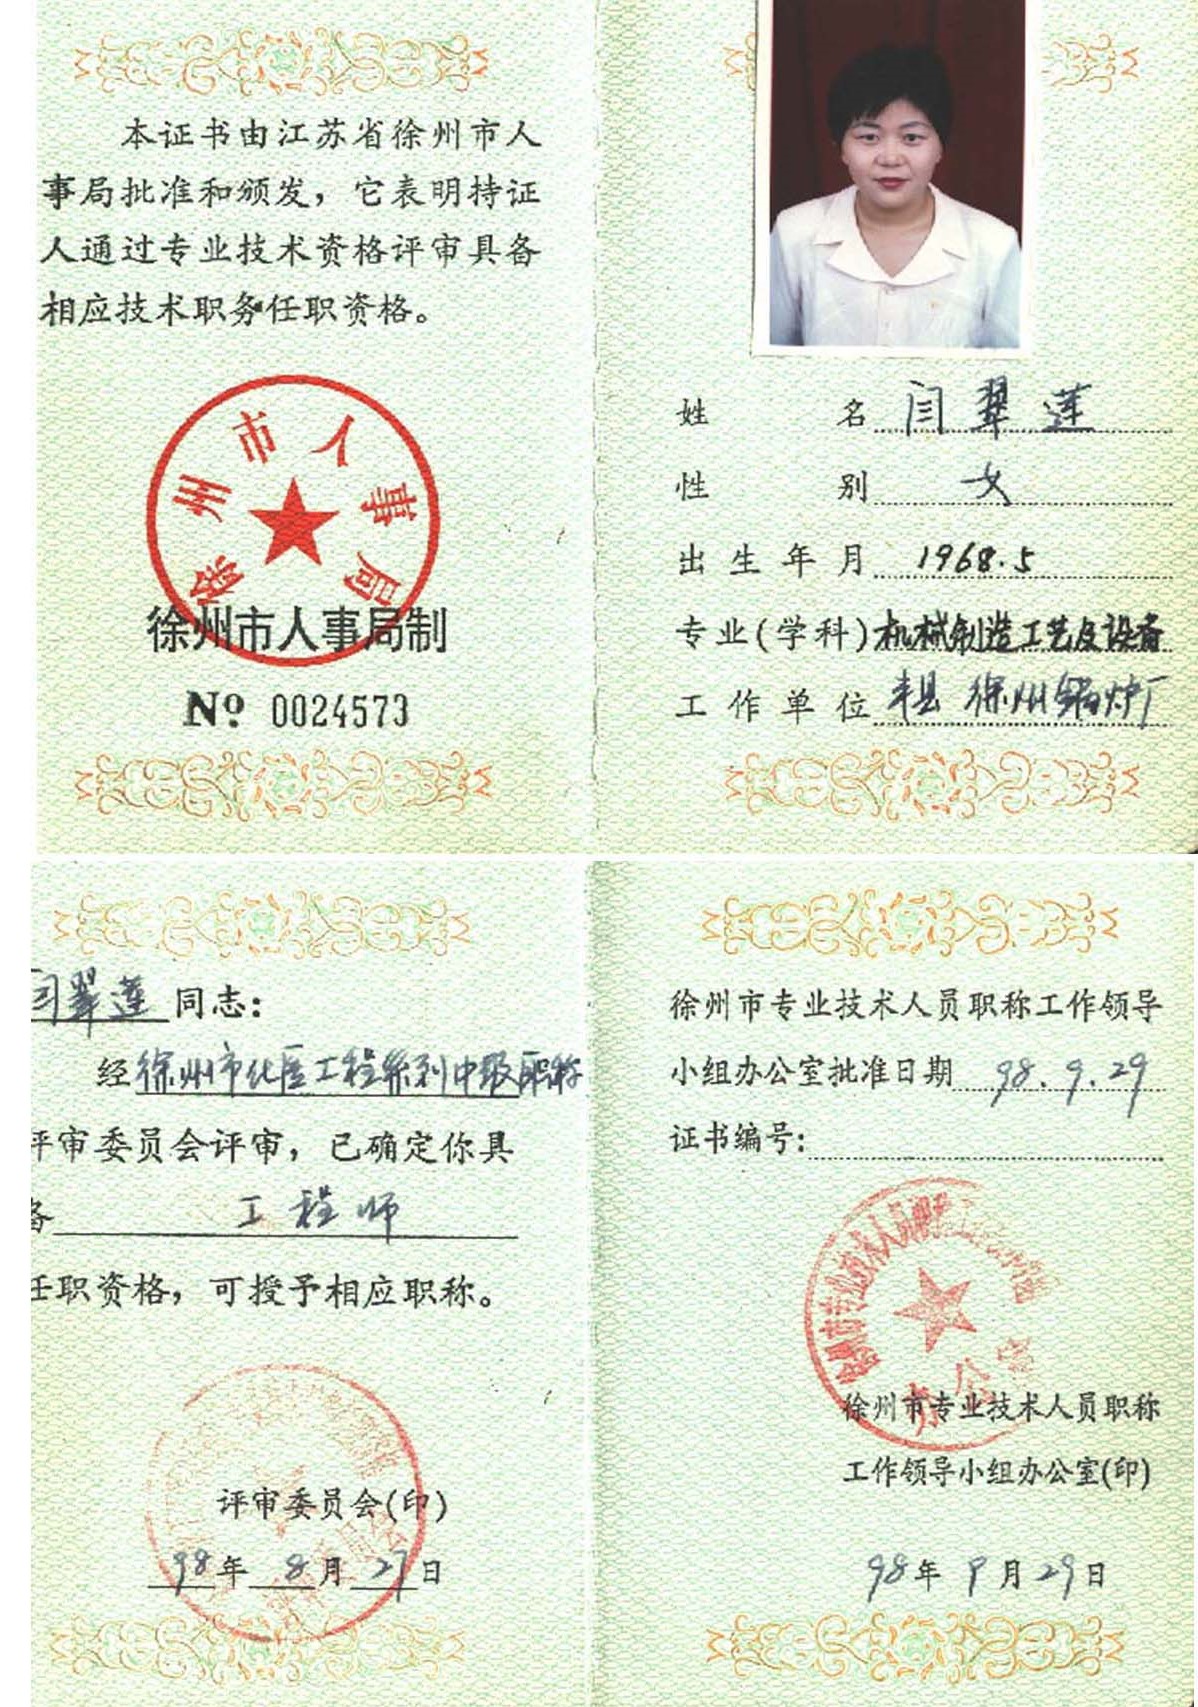 本证书由江苏省徐州市人
事局批准和颁发，它表明持证
人通过专业技术资格评审具备
相应技术职务任职资格。
徐州市人事局
徐州市人事局制
№ 0024573
姓 名 闫翠莲
性 别 女
出生年月 1968.5
专业(学科) 机械制造工艺及设备
工作单位 丰县 徐州锅炉厂
闫翠莲 同志：
经 徐州市化医工程系列中级职称
评审委员会评审，已确定你具
备 工程师
任职资格，可授予相应职称。
评审委员会(印)
98年8月27日
徐州市专业技术人员职称工作领导
小组办公室批准日期 98.9.29
证书编号：
徐州市专业技术人员职称
办公室
徐州市专业技术人员职称
工作领导小组办公室(印)
98年9月29日